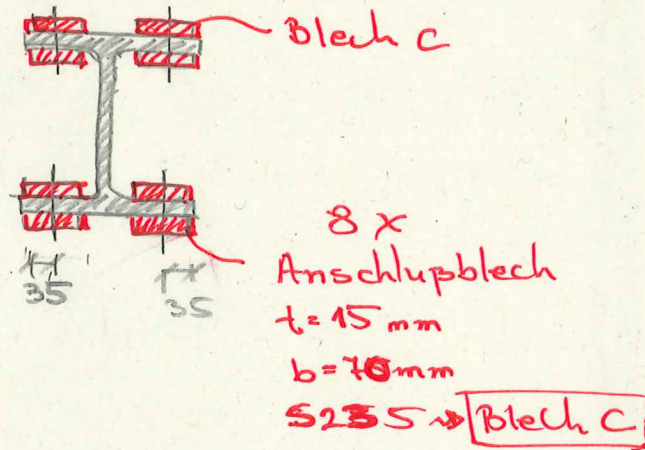 Blech C
8 x
Anschlußblech
35
35
t = 15 mm
b = 70 mm
S235 ⇝ Blech C